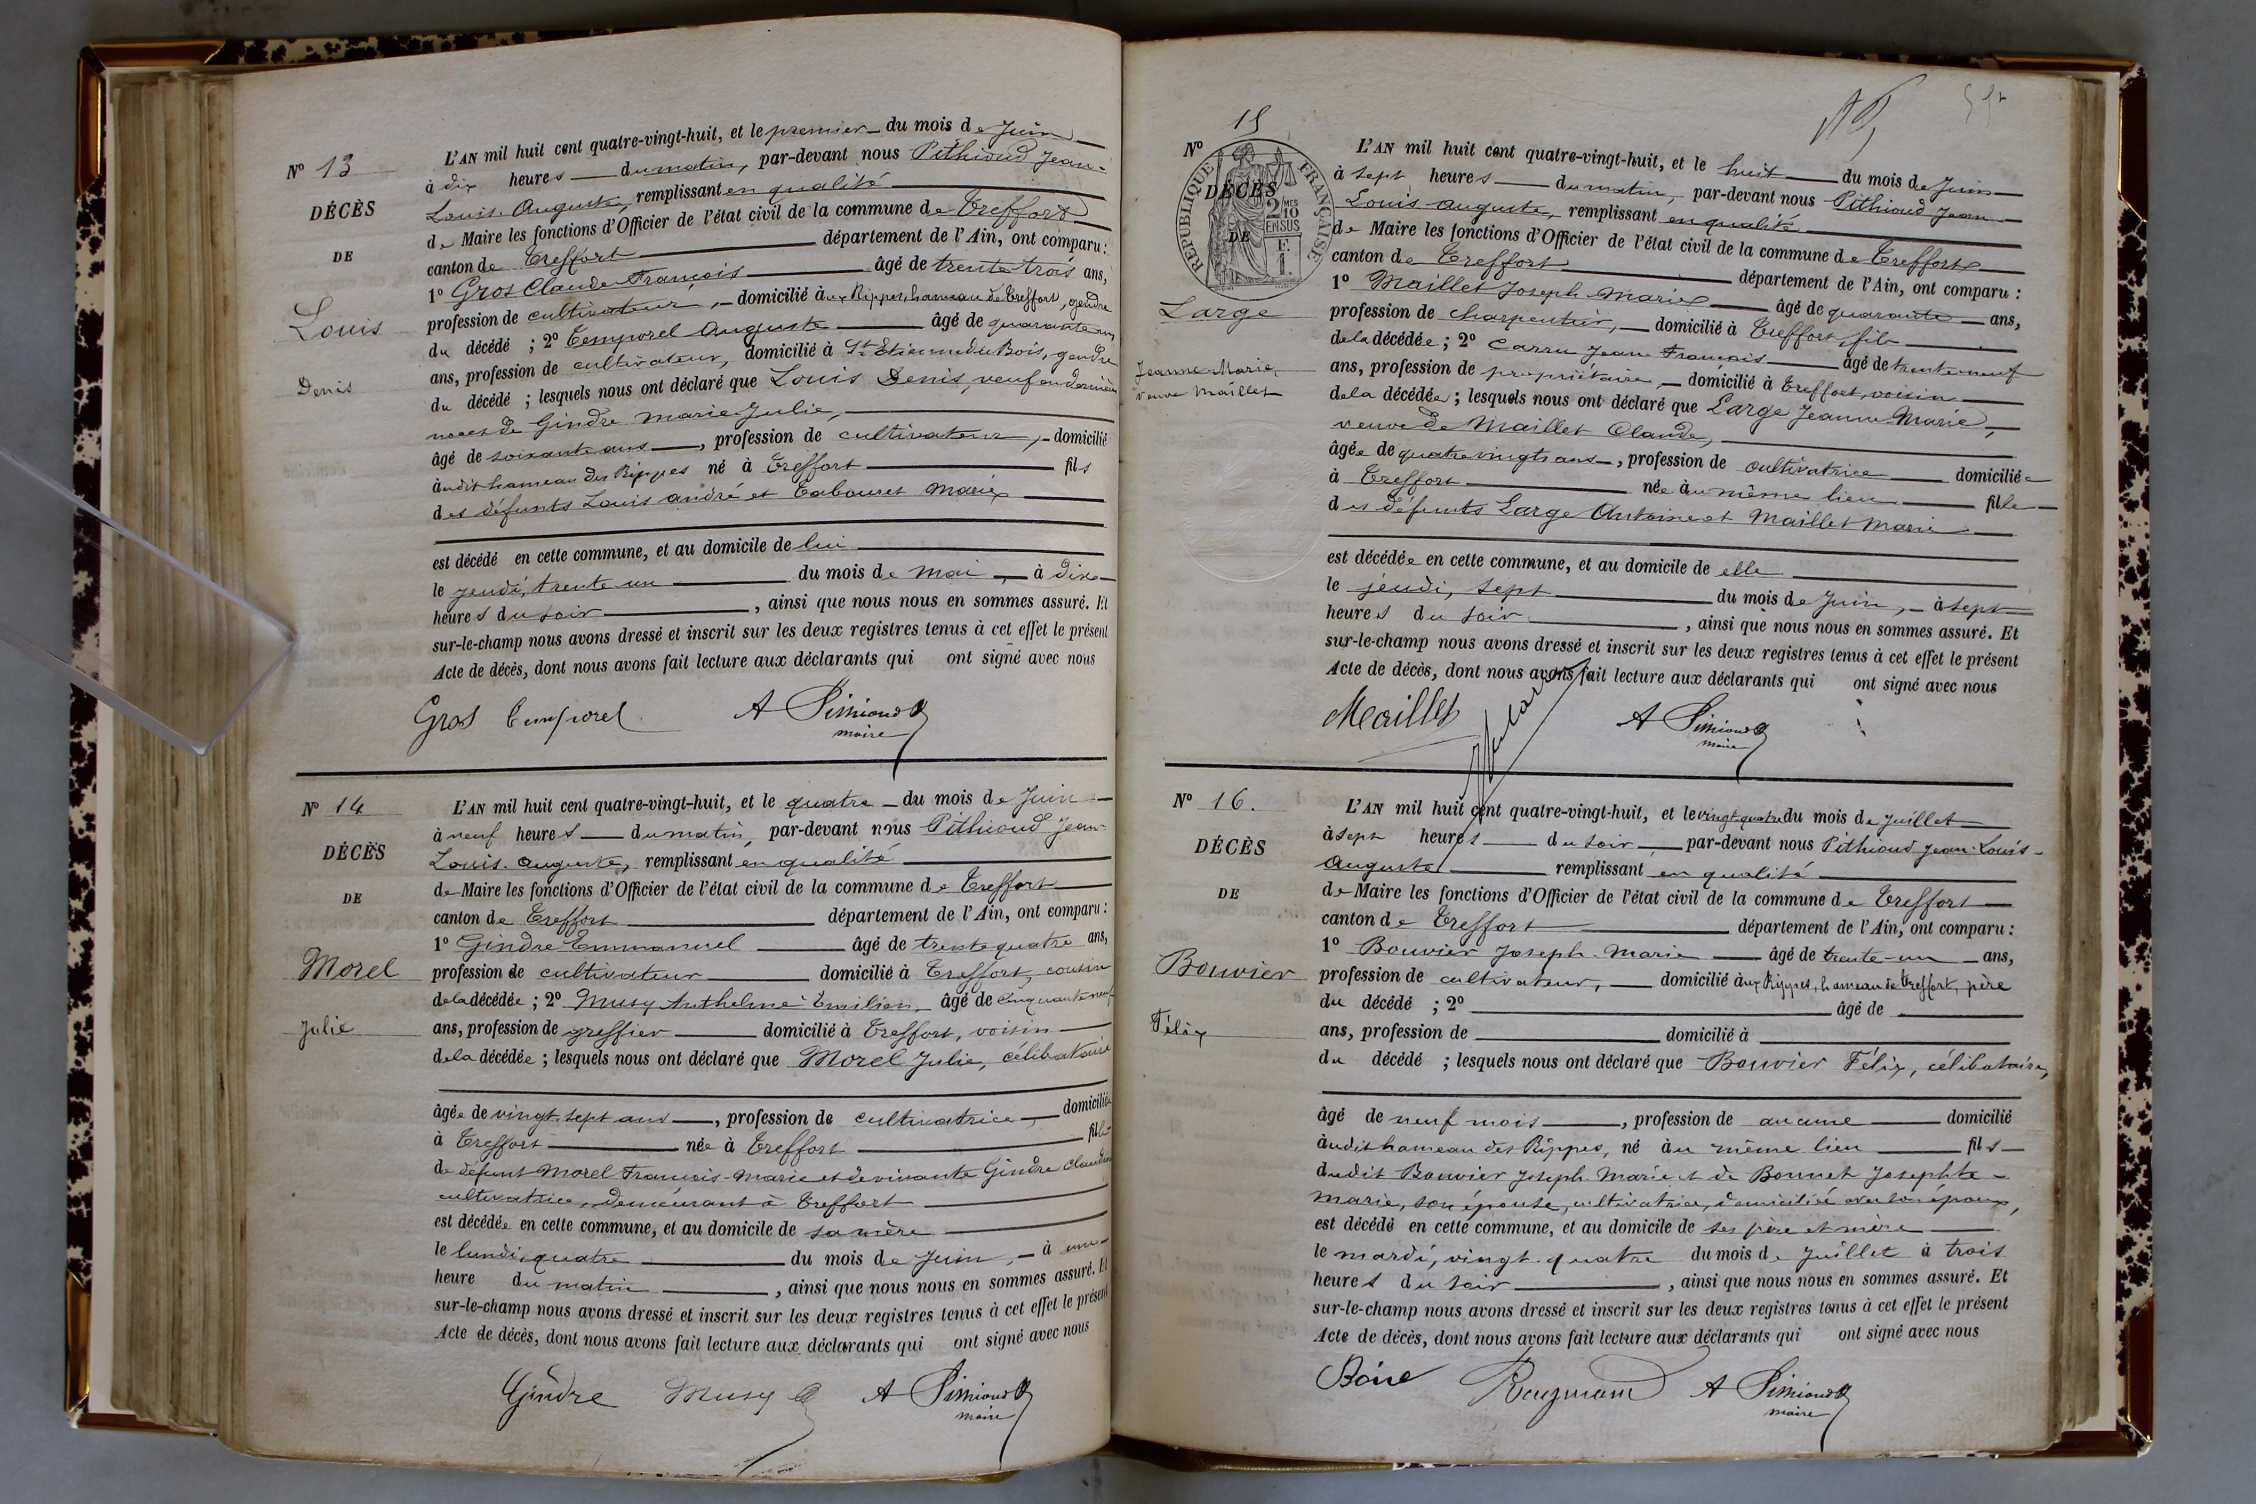 Nº 13
DÉCÈS
DE
Louis
Denis
L'AN mil huit cent quatre-vingt-huit, et le premier du mois de Juin
à dix heures du matin, par-devant nous Pithioud Jean-
Louis-Auguste, remplissant en qualité
de Maire les fonctions d'Officier de l'état civil de la commune de Treffort
canton de Treffort département de l'Ain, ont comparu :
1º Gros Claude François âgé de trente trois ans,
profession de cultivateur, domicilié aux Rippes, hameau de Treffort, gendre
du décédé ; 2º Temporel Auguste âgé de quarante un
ans, profession de cultivateur, domicilié à St Etienne du Bois, gendre
du décédé ; lesquels nous ont déclaré que Louis Denis, veuf en dernières
noces de Gindre Marie Julie,
âgé de soixante ans, profession de cultivateur, domicilié
audit hameau des Rippes né à Treffort fils
des défunts Louis André et Tabouret Marie
est décédé en cette commune, et au domicile de lui
le jeudi, trente un du mois de Mai, à dix
heures du soir, ainsi que nous nous en sommes assuré. Et
sur-le-champ nous avons dressé et inscrit sur les deux registres tenus à cet effet le présent
Acte de décès, dont nous avons fait lecture aux déclarants qui ont signé avec nous
Gros Temporel A Pithioud
maire
Nº 14
DÉCÈS
DE
Morel
Julie
L'AN mil huit cent quatre-vingt-huit, et le quatre du mois de Juin
à neuf heures du matin, par-devant nous Pithioud Jean-
Louis-Auguste, remplissant en qualité
de Maire les fonctions d'Officier de l'état civil de la commune de Treffort
canton de Treffort département de l'Ain, ont comparu :
1º Gindre Emmanuel âgé de trente quatre ans,
profession de cultivateur domicilié à Treffort, cousin
de la décédée ; 2º Musy Anthelme Emilien, âgé de cinquante neuf
ans, profession de greffier domicilié à Treffort, voisin
de la décédée ; lesquels nous ont déclaré que Morel Julie, célibataire
âgée de vingt-sept ans, profession de cultivatrice domiciliée
à Treffort née à Treffort fille
de défunt Morel François-Marie et de vivante Gindre Claudine
cultivatrice, demeurant à Treffort
est décédée en cette commune, et au domicile de sa mère
le lundi, quatre du mois de Juin, à une
heure du matin, ainsi que nous nous en sommes assuré. Et
sur-le-champ nous avons dressé et inscrit sur les deux registres tenus à cet effet le présent
Acte de décès, dont nous avons fait lecture aux déclarants qui ont signé avec nous
Gindre Musy A Pithioud
maire
Nº 15
DÉCÈS
DE
RÉPUBLIQUE FRANÇAISE
2 MES
10
EN SUS
F.
1.
Large
Jeanne Marie,
veuve Maillet
L'AN mil huit cent quatre-vingt-huit, et le huit du mois de Juin
à sept heures du matin, par-devant nous Pithioud Jean-
Louis-Auguste, remplissant en qualité
de Maire les fonctions d'Officier de l'état civil de la commune de Treffort
canton de Treffort département de l'Ain, ont comparu :
1º Maillet Joseph Marie âgé de quarante ans,
profession de charpentier, domicilié à Treffort, fils
de la décédée ; 2º Carru Jean François âgé de trente neuf
ans, profession de propriétaire, domicilié à Treffort, voisin
de la décédée ; lesquels nous ont déclaré que Large Jeanne Marie,
veuve de Maillet Claude,
âgée de quatre vingts ans, profession de cultivatrice domiciliée
à Treffort née au même lieu fille
des défunts Large Antoine et Maillet Marie
est décédée en cette commune, et au domicile de elle
le jeudi, sept du mois de Juin, à sept
heures du soir, ainsi que nous nous en sommes assuré. Et
sur-le-champ nous avons dressé et inscrit sur les deux registres tenus à cet effet le présent
Acte de décès, dont nous avons fait lecture aux déclarants qui ont signé avec nous
Maillet A Pithioud
maire
Nº 16.
DÉCÈS
DE
Bouvier
Félix
L'AN mil huit cent quatre-vingt-huit, et le vingt quatre du mois de Juillet
à sept heures du soir, par-devant nous Pithioud Jean-Louis-
Auguste, remplissant en qualité
de Maire les fonctions d'Officier de l'état civil de la commune de Treffort
canton de Treffort département de l'Ain, ont comparu :
1º Bouvier Joseph Marie âgé de trente-un ans,
profession de cultivateur, domicilié aux Rippes, hameau de Treffort, père
du décédé ; 2º âgé de
ans, profession de domicilié à
du décédé ; lesquels nous ont déclaré que Bouvier Félix, célibataire,
âgé de neuf mois, profession de aucune domicilié
audit hameau des Rippes, né au même lieu fils
dudit Bouvier Joseph Marie et de Bonnet Josephte-
Marie, son épouse, cultivatrice, domiciliée avec son époux,
est décédé en cette commune, et au domicile de ses père et mère
le mardi, vingt-quatre du mois de Juillet à trois
heures du soir, ainsi que nous nous en sommes assuré. Et
sur-le-champ nous avons dressé et inscrit sur les deux registres tenus à cet effet le présent
Acte de décès, dont nous avons fait lecture aux déclarants qui ont signé avec nous
A Pithioud
maire